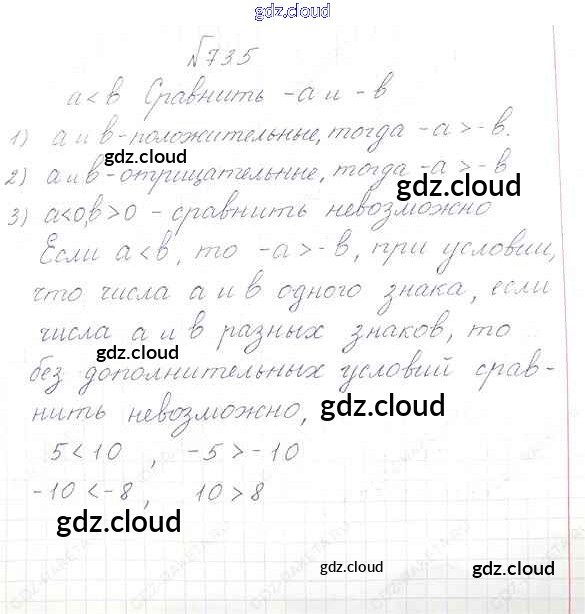 gdz.cloud
№735
a<b Сравнить -a и -b
1) a и b-положительные, тогда -a>-b.
gdz.cloud
2) a и b-отрицательные, тогда -a>-b
gdz.cloud
3) a<0,b>0 - сравнить невозможно
Если a<b, то -a>-b, при условии,
что числа a и b одного знака, если
числа a и b разных знаков, то
gdz.cloud
без дополнительных условий срав-
нить невозможно,
gdz.cloud
5<10 , -5>-10
-10<-8, 10>8
gdz.cloud
gdz.cloud
gdz.cloud